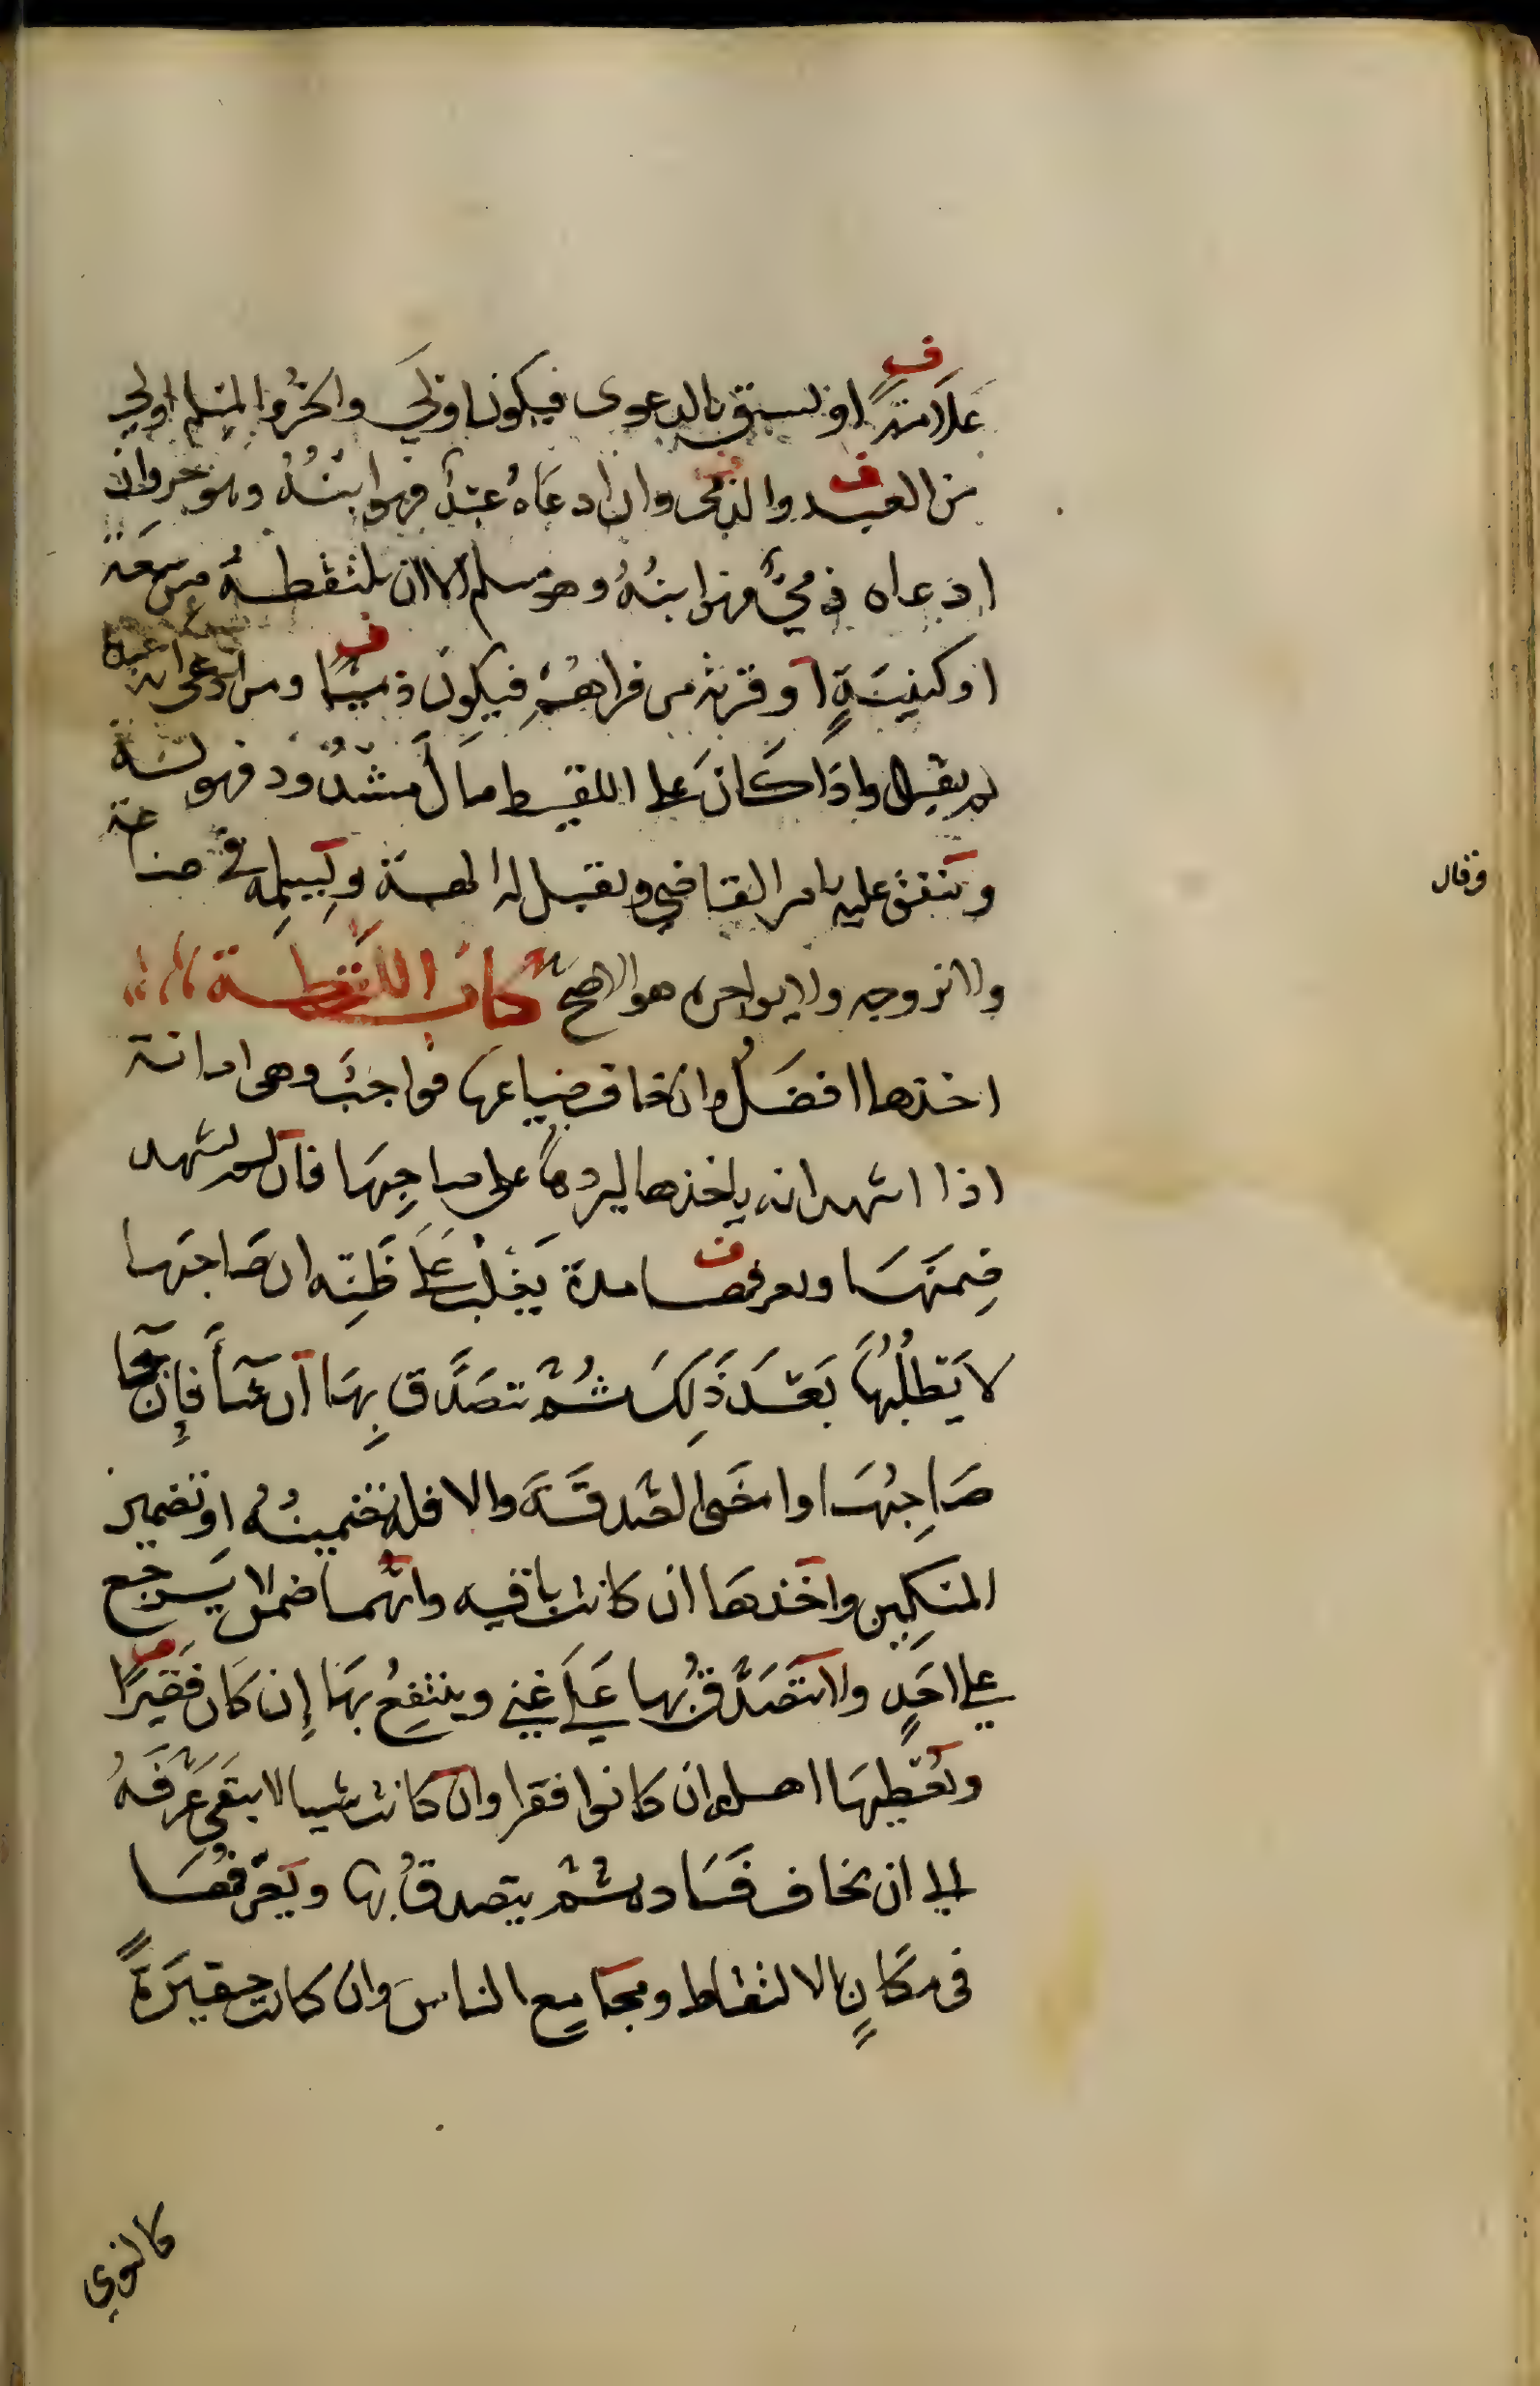 علامةً او يسبق بالدعوى فيكون اولى والحر والمسلم اولى
من العبد والذمى وان ادعاه عبدٌ فهو ابنُهُ وهو حر وان
ادعاه ذميٌّ فهو ابنُهُ وهو مسلم الا ان يلتقطه من بيعة
او كنيسةٍ او قرية من قراهم فيكون ذميًا ومن ادعى انه عبده
لم يقبل واذا كان على اللقيط مال مشدُود فهو له
وينفق عليه بامر القاضي ويقبل له الهبة ويسلمه في صناعة
ولا يزوجه ولا يواجره هو الاصح كتاب اللقطة
اخذها افضل وان خاف ضياعها فواجبٌ وهى امانة
اذا اشهد انه ياخذها ليردها على صاحِبِها فان لم يشهد
ضمنها ويعرفها مدة يَغلب عَلَى ظَنِّه ان صَاحبها
لا يَطلُبُها بَعدَ ذَلِكَ ثُمَّ تصَدَّق بِهَا ان شَأَ فإن جا
صَاحِبُهَا وامضى الصَدقَةَ والا فله تضمينُهُ او تضمين
المسكين واخذها ان كانت باقيه وايهما ضمن لا يَرجع
على احَدٍ ولا يتَصَدَّقُ بها عَلَى غني وينتفِعُ بهَا إن كَان فَقيرًا
ويُعطيها اهله ان كانوا فقرا وان كانت شيا لا يبقى عَرَّفَهُ
الى ان يخاف فَسَاده ثُمَّ يتصدقُ بها ويُعرّفُهَا
فى مكَانِ الالتقاط ومجامِع الناس وان كانت حقيرَةً
كالنوى
وقال